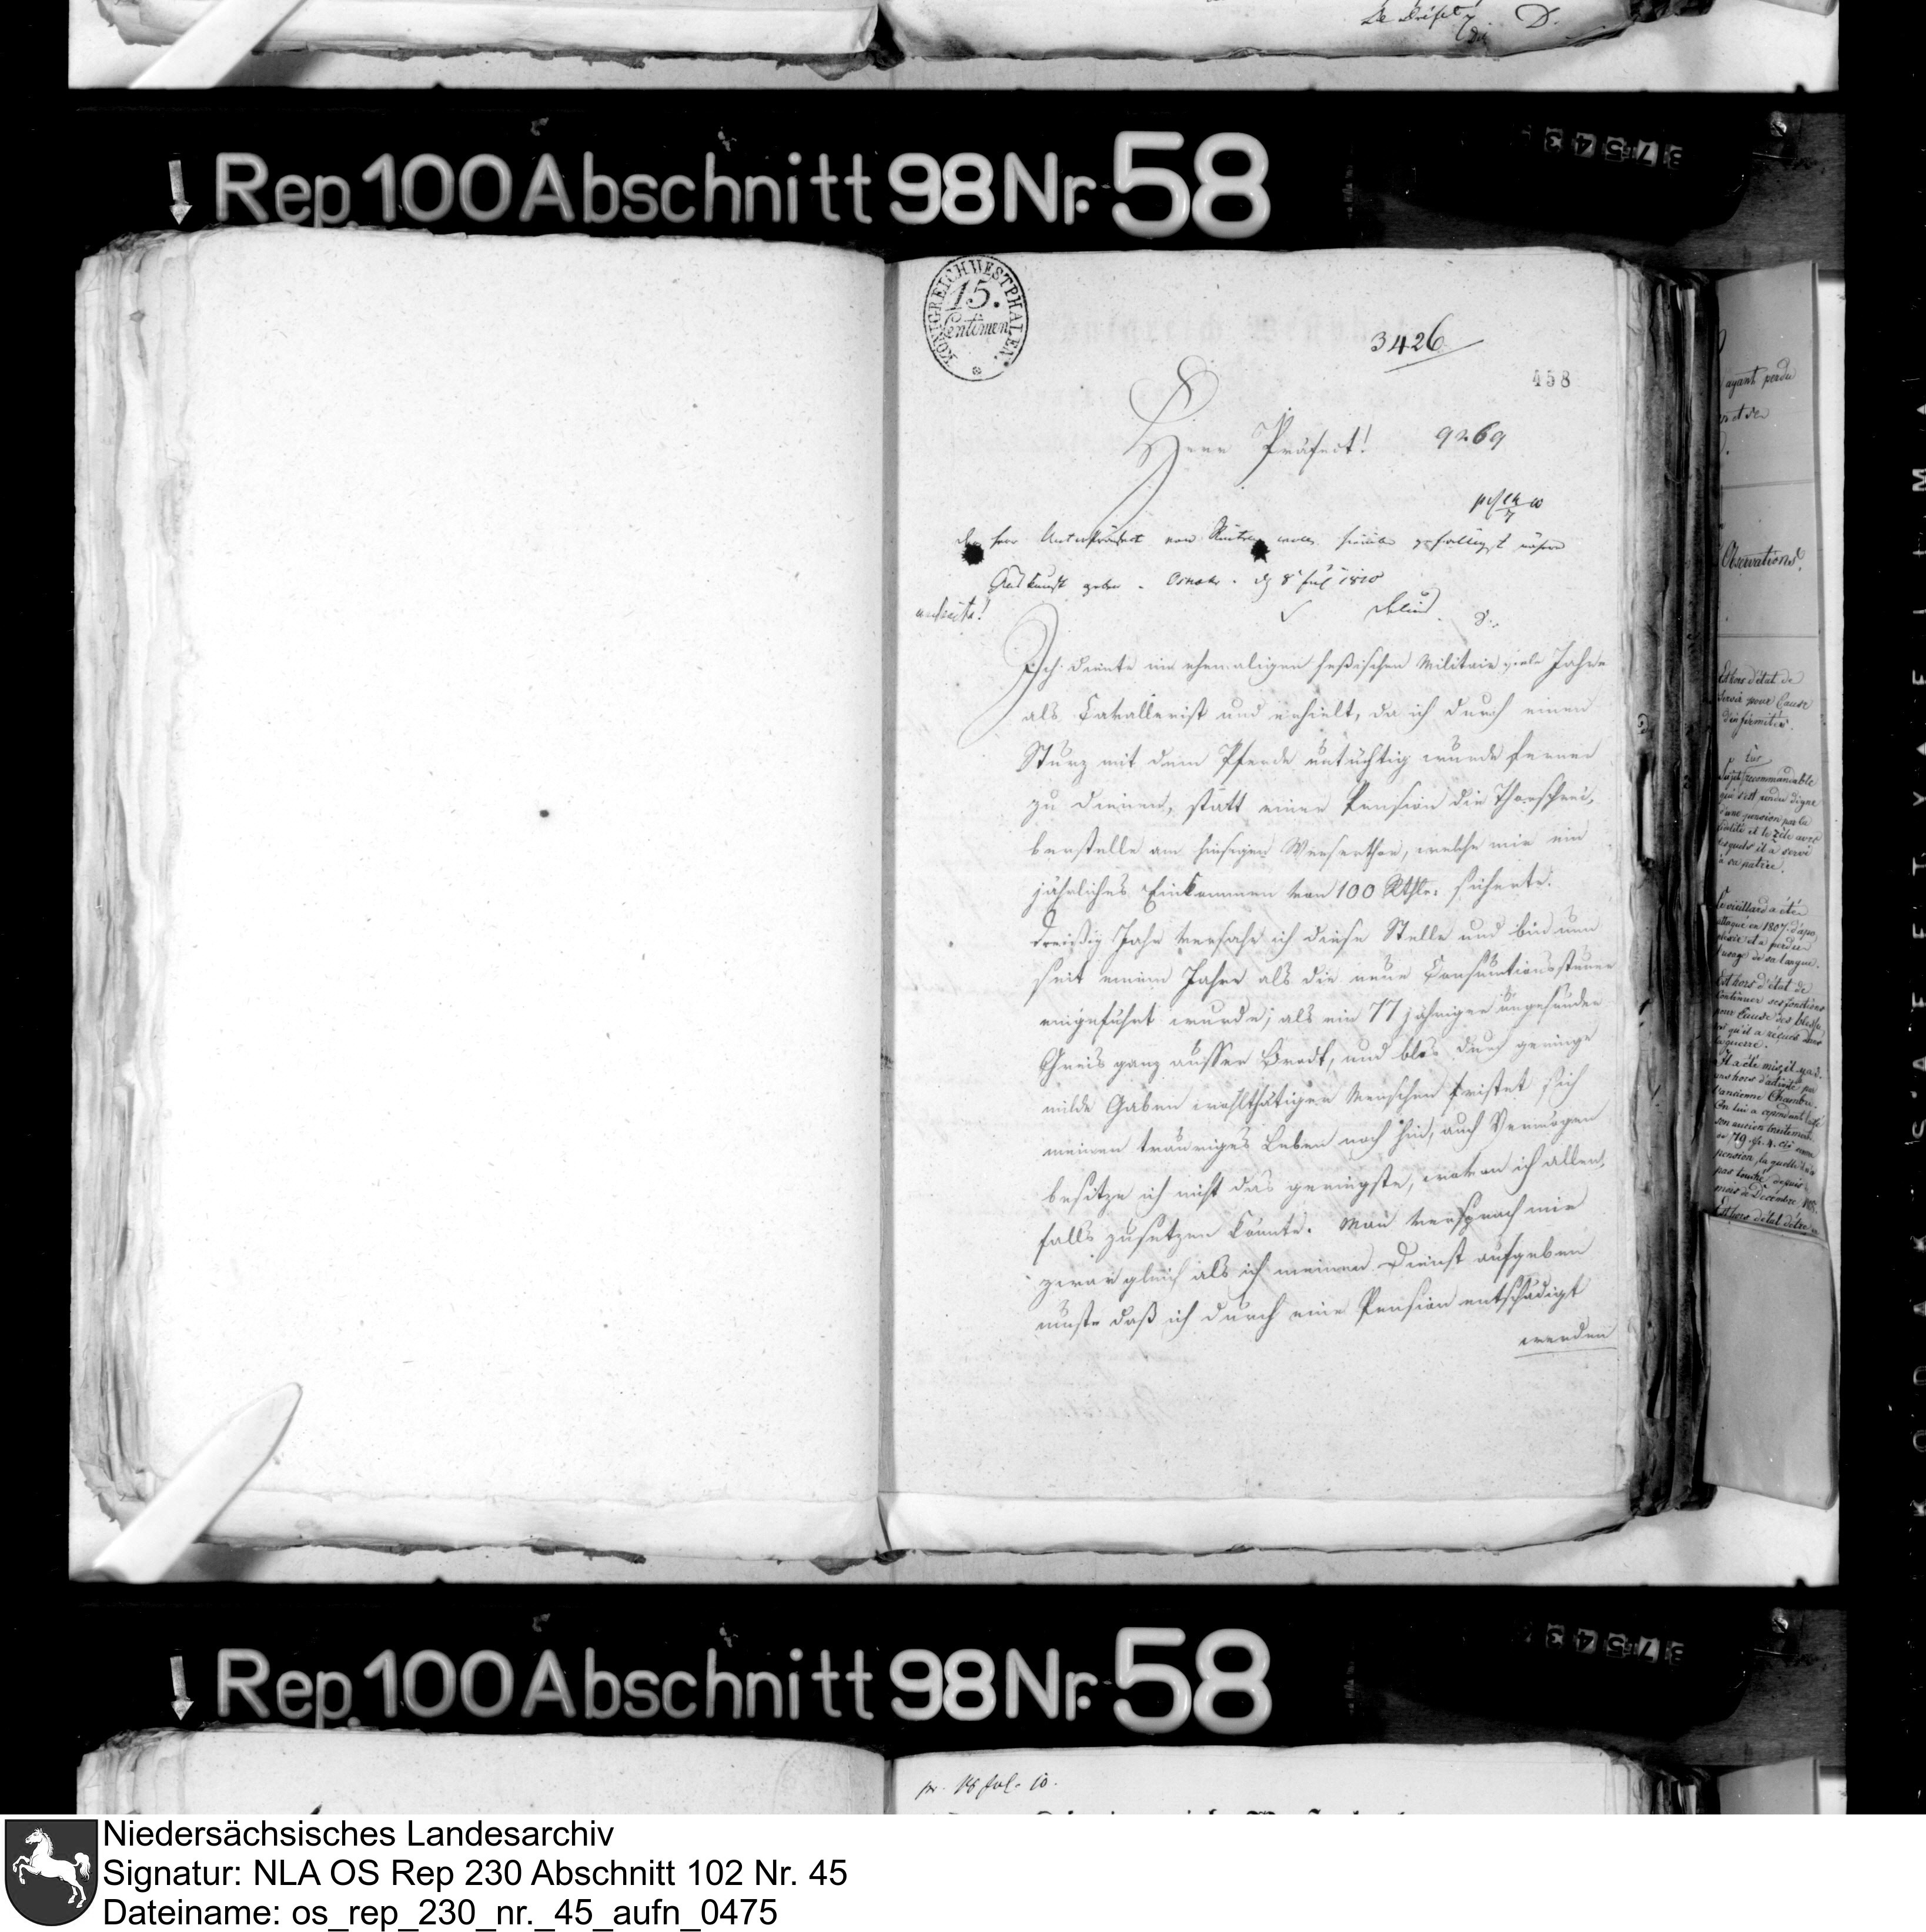 Rep. 100 Abschnitt 98 Nr. 58
KÖNIGREICH WESTPHALEN.
15.
Centimen
3426
458
Herr Präfect!
9269
der Herr Unterpräfect von wolle hierüber gefälligst nähere
Auskunft geben. Osnabr. d 8 Jul 1810
Ich diente im ehemaligen heßischen Militair viele Jahre
als Cavallerist und erhielt, da ich durch einen
Sturz mit dem Pferde untüchtig wurde ferner
zu dienen, statt einer Pension die Thorschrei-
berstelle am hiesigen Weserthor, welche mir ein
jährliches Einkommen von 100 Rthlr. sicherte.
Dreißig Jahr versahe ich diese Stelle und bin nun
seit einem Jahre als die neue Consumtionssteuer
eingeführt wurde, als ein 77 jähriger ungesunder
Greis ganz ausser Brodt, und blos durch geringe
milde Gaben wohlthätiger Menschen fristet sich
meinen trauriges Leben noch hin, auch Vermögen
besitze ich nicht das geringste, wovon ich allen-
falls zusetzen könnte. Man versprach mir
zwar gleich als ich meinen Dienst aufgeben
muste daß ich durch eine Pension entschädigt
werden
ayant perdu
Observations.
Est hors d'état de
servir pour Cause
d'infirmités.
Sujet recommandable
qui s'est rendu digne
d'une pension par la
fidélité et le zèle avec
lesquels il a servi
à sa patrie.
Ce vieillard a été
attaqué en 1807. d'apo
plexie et a perdu
l'usage de sa langue.
Est hors d'état de
continuer ses fonctions
pour Cause des blessu
res qu'il a reçues dans
la guerre.
l'ancienne Chambre.
On lui a cependant laissé
son ancien traitement
Est hors d'état d'être
Rep. 100 Abschnitt 98 Nr. 58
pr. 14 Jul. 10.
Niedersächsisches Landesarchiv
Signatur: NLA OS Rep 230 Abschnitt 102 Nr. 45
Dateiname: os_rep_230_nr._45_aufn_0475